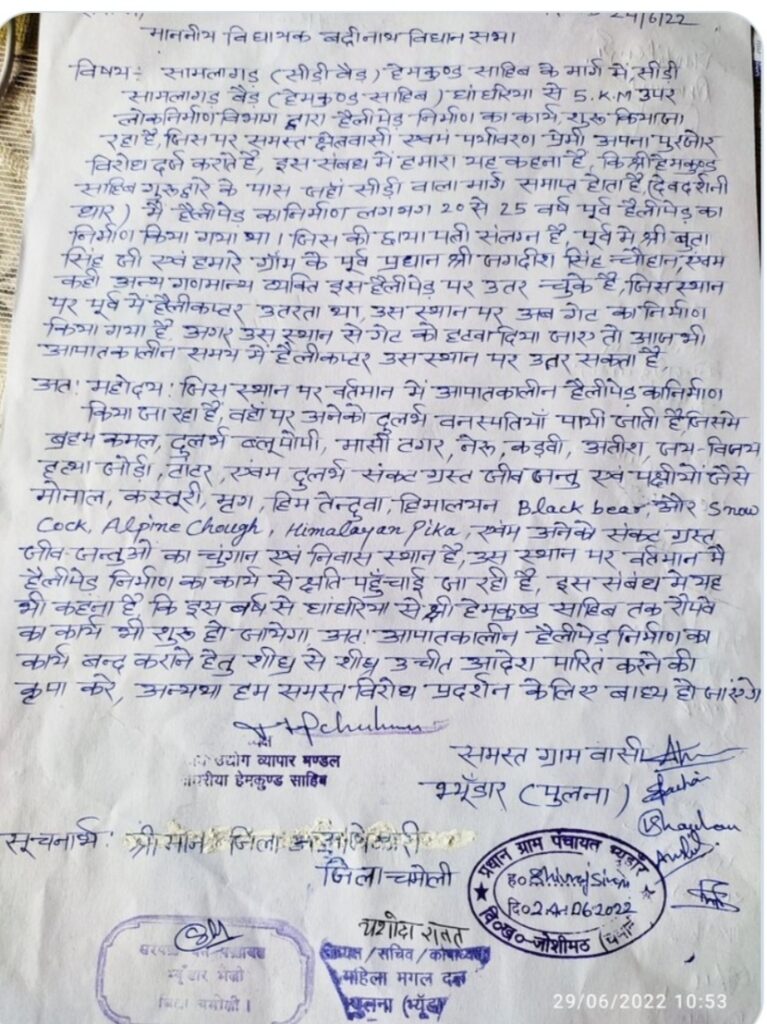 24/6/22
माननीय विधायक बद्रीनाथ विधान सभा
विषय: सामलागड़ (सीडी वैड़) हेमकुण्ड साहिब के मार्ग में, सीडी
सामलागड़ वैड़ (हेमकुण्ड साहिब) घांघरिया से 5.K.M उपर
लोकनिर्माण विभाग द्वारा हैलीपेड़ निर्माण का कार्य शुरू किया जा
रहा है, जिस पर समस्त क्षेत्रवासी एवमं पर्यावरण प्रेमी अपना पुरजोर
विरोध दर्ज कराते है, इस संबध में हमारा यह कहना है, कि श्री हेमकुण्ड
साहिब गुरूद्वारे के पास जहां सीडी वाला मार्ग समाप्त होता है (देवदर्शनी
धार) में हैलीपेड़ का निर्माण लगभग 20 से 25 वर्ष पूर्व हैलीपेड़ का
निर्माण किया गया था। जिस की छाया प्रती संलग्न है, पूर्व मे श्री बुटा
सिंह जी एवं हमारे ग्रॉम के पूर्व प्रधान श्री जगदीश सिंह चौहान, एवम
कही अन्य गणमान्य व्यक्ति इस हैलीपेड़ पर उतर चुके है, जिस स्थान
पर पूर्व में हैलीकाप्टर उतरता था, उस स्थान पर अब गेट का निर्माण
किया गया है अगर उस स्थान से गेट को हटवा दिया जाए तो आज भी
आपातकालीन समय मे हैलीकाप्टर उस स्थान पर उतर सकता है
अतः महोदय: जिस स्थान पर वर्तमान में आपातकालीन हैलीपेड़ का निर्माण
किया जा रहा है, वहां पर अनेको दुलर्भ वनस्पतियाँ पायी जाती है जिसमे
ब्रहम कमल, दुलर्भ ब्लू पोपी, मासी टगर, नेरू, कड़वी, अतीश, जय-विजय
हत्था जोड़ी, टांटर, एवम दुलर्भ संकट ग्रस्त जीव जन्तु एवं पक्षीयों जैसे
मोनाल, कस्तूरी, मृग, हिम तेन्दुवा, हिमालयन Black bear, और Snow
Cock, Alpine Chough, Himalayan Pika, एवंम अनेको संकट ग्रस्त
जीव-जन्तुओ का चुंगान एवं निवास स्थान है, उस स्थान पर वर्तमान मै
हैलीपेड़ निर्माण का कार्य से क्षति पहुँचाई जा रही है, इस संबंध मे यह
भी कहना है, कि इस वर्ष से घांघरिया से श्री हेमकुण्ड साहिब तक रौपवे
का कार्य भी शुरू हो जायेगा अतः आपातकालीन हैलीपेड़ निर्माण का
कार्य बन्द कराने हेतु शीघ्र से शीघ्र उचीत आदेश पारित करने की
कृपा करे, अन्यथा हम समस्त विरोध प्रदर्शन के लिए बाध्य हो जाएंगे
उद्योग व्यापार मण्डल
हेमकुण्ड साहिब
समस्त ग्राम वासी
भ्यूँडार (पुलना)
सूचनार्थ: श्रीमान जिला
जिला-चमोली
प्रधान ग्राम पंचायत भ्यूडाँर
ह०
दि० 24-06-2022
वि०ख०-जोशीमठ (चमोली)
यशोदा रावत
अध्यक्ष/सचिव/कोषाध्यक्ष
महिला मंगल दल
पुलना (भ्यूंडार)
सरपंच
भ्यूँडार
जिला चमोली।
29/06/2022 10:53